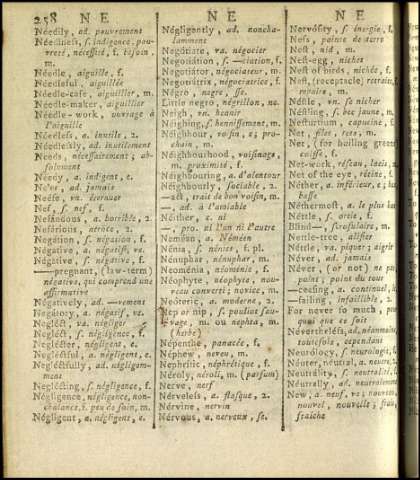 258 N E
N E
N E
Néedily, ad. pauvrement
Néediness, s. indigence, pau-
vreté, nécessité, f. besoin,
m.
Néedle, aiguille, f.
Néedleful, aiguillée
Néedle-case, aiguillier, m.
Néedle-maker, aiguillier
Néedle-work, ouvrage à
l'aiguille
Néedless, a. inutile, 2.
Néedlessly, ad. inutilement
Needs, nécessairement; ab-
solument
Néedy, a. indigent, e.
Ne'er, ad. jamais
Neése, vn. éternuer
Nef, s. nef, f.
Nefándous, a. horrible, 2.
Nefárious, atroce, 2.
Negátion, s. négation, f.
Négative, a. négatif, ve.
Négative, s. négative, f.
—pregnant, (law-term)
négative, qui comprend une
affirmative
Négatively, ad. —vement
Négatory, a. négatif, ve.
Negléct, va. négliger
Negléct, s. négligence, f.
Neglécter, négligent, e.
Negléctful, a. négligent, e.
Negléctfully, ad. négligem-
ment
Neglécting, s. négligence, f.
Négligence, négligence, non-
chalance, f. peu de soin, m.
Négligent, a. négligent, e.
Négligently, ad. noncha-
lamment
Negótiate, va. négocier
Negotiátion, s. —ciation, f.
Negotiátor, négociateur, m.
Negotiátrix, négociatrice, f.
Négro, negre, sse.
Little negro, négrillon, ne.
Neigh, vn. hennir
Néighing, s. hennissement, m.
Néighbour, voisin, e; pro-
chain, m.
Néighbourhood, voisinage,
m. proximité f.
Néighbouring, a. d'alentour
Néighbourly, sociable, 2.
—act, trait de bon voisin, m.
—, ad. à l'amiable
Néither, c. ni
—, pro. ni l'un ni l'autre
Neméan, a. Néméen
Nénia, s. nénies, f. pl.
Nénuphar, nénuphar, m.
Neoménia, néoménie, f.
Néophyte, néophyte, nou-
veau converti; novice, m.
Neotéric, a. moderne, 2.
Nep or nip, s. pouliot sau-
vage, m. ou nephta, m.
(herbe)
Népenthe, panacée, f.
Néphew, neveu, m.
Nephritic, néphrétique, f.
Néroly, néroli, m. (parfum)
Nerve, nerf
Nérveless, a. flasque, 2.
Nérvine, nervin
Nérvous, a. nerveux, se.
Nervósity, s. énergie, f.
Ness, pointe de terre
Nest, nid, m.
Nest-egg, nichet
Nest of birds, nichée, f.
Nest, (receptacle)
repaire, m.
Néstle, vn. se nicher
Néstling, s. bec jaune, m.
Nestturtium, capucine, f.
Net, filet, rets, m.
Net, (for boiling
coiffe, f.
Net-work, réseau, lacis,
Net of the eye, rétine, f.
Néther, a. inférieur, e;
basse
Néthermost, a. le plus
Néttle, s. ortie, f.
Blind—, scrofulaire, m.
Nettle-tree, alisier
Néttle, va. piquer; aigrir
Néver, ad. jamais
Néver, (or not) ne pas;
point; point du tout
—ceasing, a. continuel,
—failing, infaillible, 2.
For never so much,
quoi que ce soit
Névertheless, ad. néanmoins,
toutefois, cependant
Neurólogy, s. neurologie, f.
Néuter, néutral, a. neutre,
Neutrálity, s. neutralité, f.
Neutrally, ad. neutralement
New, a. neuf, ve; nouveau,
nouvel, nouvelle; frais,
fraîche